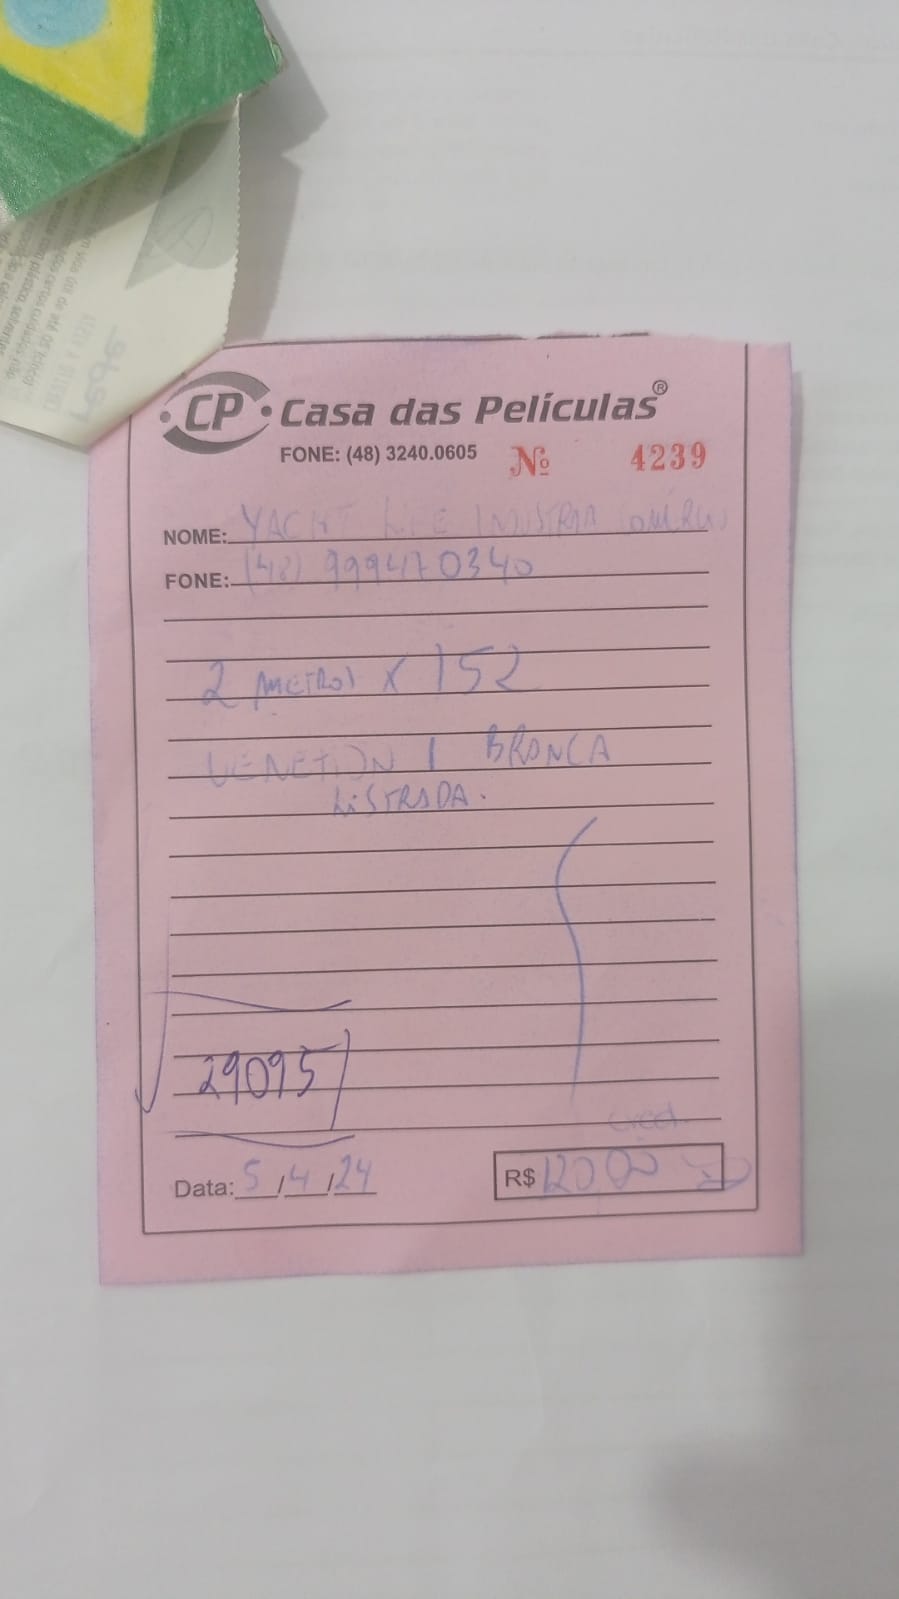 CP Casa das Películas®
FONE: (48) 3240.0605 Nº 4239
NOME: YACHT LIFE INDUSTRIA
FONE: (48) 999470340
2 METROS X 152
VENETION 1 BRANCA
LISTRADA.
29095
Cred.
Data: 5/4/24 R$ 120,00